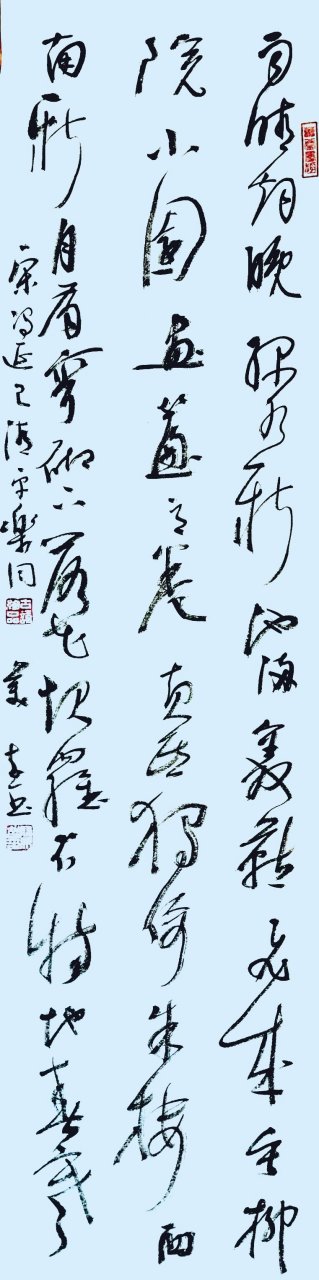 雨晴烟晚绿水新池满双燕飞来垂柳
院小園画簾高卷黄昏独倚朱楼西
南新月眉弯砌下落花起羅衣特地春寒
宋冯延巳清平樂词